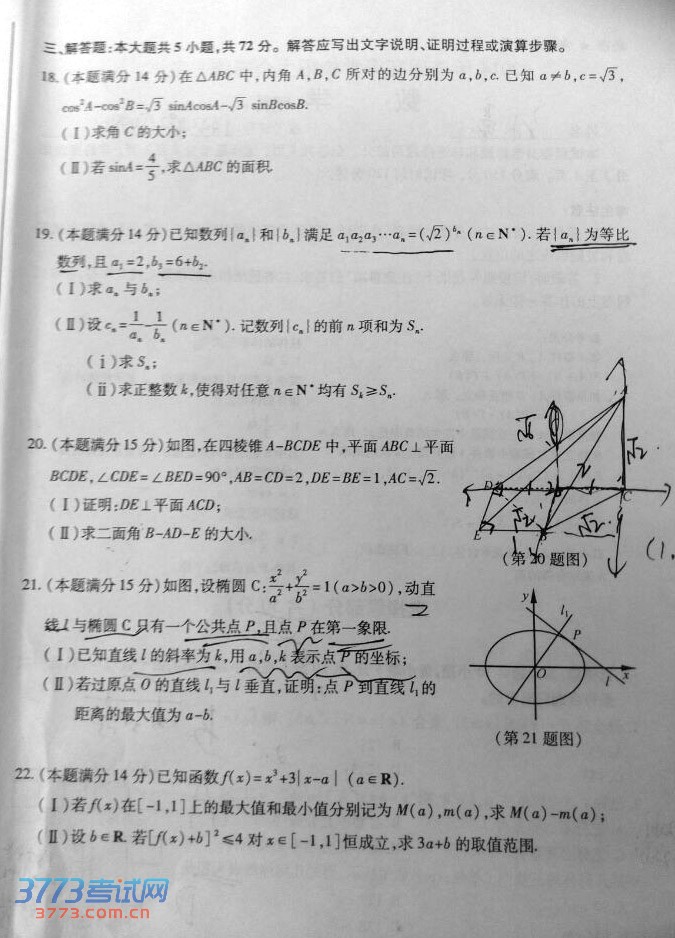 三、解答题:本大题共5小题,共72分。解答应写出文字说明、证明过程或演算步骤。
18.(本题满分14分)在△ABC中,内角A,B,C所对的边分别为a,b,c.已知a≠b,c=√3,
cos²A-cos²B=√3 sinAcosA-√3 sinBcosB.
(Ⅰ)求角C的大小;
(Ⅱ)若sinA=4/5,求△ABC的面积.
19.(本题满分14分)已知数列{aₙ}和{bₙ}满足a₁a₂a₃⋯aₙ=(√2)^bₙ (n∈N*).若{aₙ}为等比
数列,且a₁=2,b₃=6+b₂.
(Ⅰ)求aₙ与bₙ;
(Ⅱ)设cₙ=1/aₙ-1/bₙ (n∈N*).记数列{cₙ}的前n项和为Sₙ.
(ⅰ)求Sₙ;
(ⅱ)求正整数k,使得对任意n∈N*均有Sₖ≥Sₙ.
20.(本题满分15分)如图,在四棱锥A-BCDE中,平面ABC⊥平面
BCDE,∠CDE=∠BED=90°,AB=CD=2,DE=BE=1,AC=√2.
(Ⅰ)证明:DE⊥平面ACD;
(Ⅱ)求二面角B-AD-E的大小.
√6
√2
2
D
C
E
√2
√2
B
(1,
(第20题图)
21.(本题满分15分)如图,设椭圆C:x²/a²+y²/b²=1(a>b>0),动直
线l与椭圆C只有一个公共点P,且点P在第一象限.
(Ⅰ)已知直线l的斜率为k,用a,b,k表示点P的坐标;
(Ⅱ)若过原点O的直线l₁与l垂直,证明:点P到直线l₁的
距离的最大值为a-b.
y
l₁
P
O
l
x
(第21题图)
22.(本题满分14分)已知函数f(x)=x³+3|x-a| (a∈R).
(Ⅰ)若f(x)在[-1,1]上的最大值和最小值分别记为M(a),m(a),求M(a)-m(a);
(Ⅱ)设b∈R.若[f(x)+b]²≤4对x∈[-1,1]恒成立,求3a+b的取值范围.
3773考试网
3773.com.cn